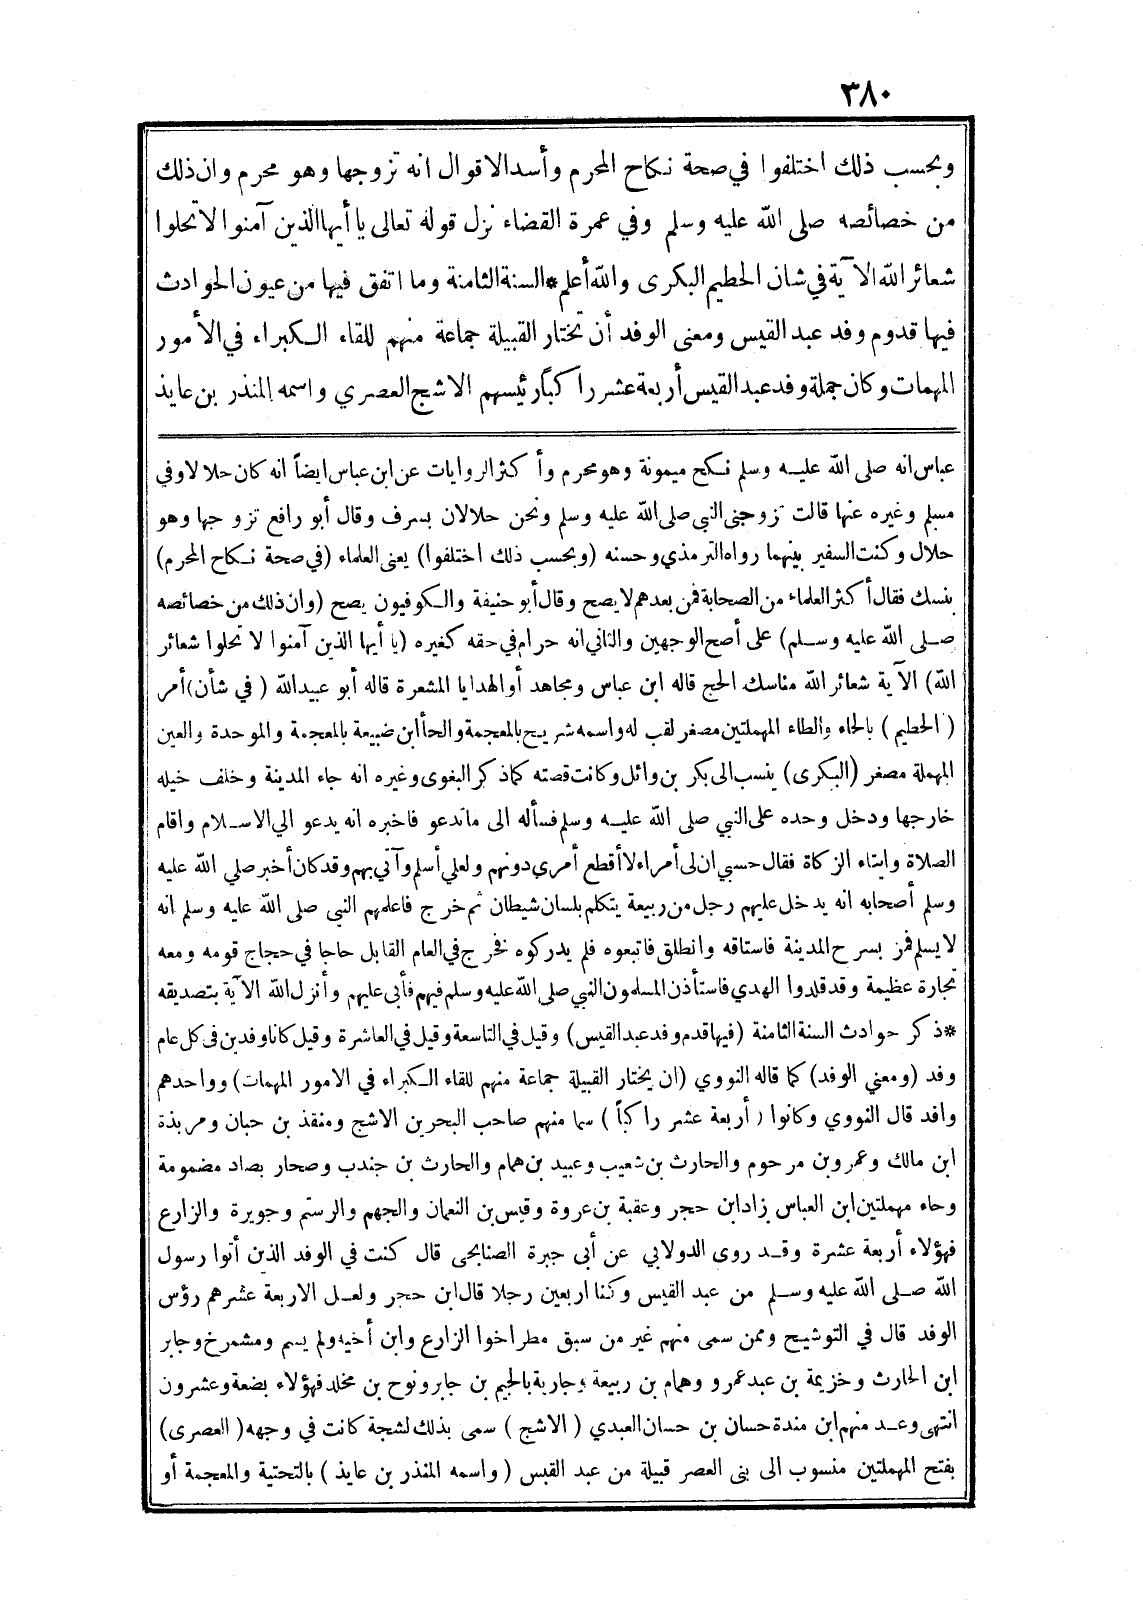 ٣٨٠
وبحسب ذلك اختلفوا في صحة نكاح المحرم وأسد الاقوال انه تزوجها وهو محرم وان ذلك
من خصائصه صلى الله عليه وسلم وفي عمرة القضاء نزل قوله تعالى يا أيها الذين آمنوا لا تحلوا
شعائر الله الآية في شان الحطيم البكرى والله أعلم * السنة الثامنة وما اتفق فيها من عيون الحوادث
فيها قدوم وفد عبد القيس ومعنى الوفد أن تختار القبيلة جماعة منهم للقاء الكبراء في الأمور
المهمات وكان جملة وفد عبد القيس أربعة عشر راكباً رئيسهم الاشج العصري واسمه المنذر بن عايذ
عباس انه صلى الله عليه وسلم نكح ميمونة وهو محرم وأكثر الروايات عن ابن عباس ايضاً انه كان حلالا وفي
مسلم وغيره عنها قالت تزوجني النبي صلى الله عليه وسلم ونحن حلالان بسرف وقال أبو رافع تزوجها وهو
حلال وكنت السفير بينهما رواه الترمذي وحسنه (وبحسب ذلك اختلفوا) يعنى العلماء (في صحة نكاح المحرم)
بنسك فقال أكثر العلماء من الصحابة فمن بعدهم لا يصح وقال أبو حنيفة والكوفيون يصح (وان ذلك من خصائصه
صلى الله عليه وسلم) على أصح الوجهين والثاني انه حرام في حقه كغيره (يا أيها الذين آمنوا لا تحلوا شعائر
الله) الآية شعائر الله مناسك الحج قاله ابن عباس ومجاهد أو الهدايا المشعرة قاله أبو عبيد الله (في شأن) أمر
(الحطيم) بالحاء والطاء المهملتين مصغر لقب له واسمه شريح بالمعجمة والحاأبن ضبيعة بالمعجمة والموحدة والعين
المهملة مصغر (البكرى) ينسب الى بكر بن وائل وكانت قصته كما ذكر البغوى وغيره انه جاء المدينة وخلف خيله
خارجها ودخل وحده على النبي صلى الله عليه وسلم فسأله الى ما تدعو فاخبره انه يدعو الي الاسلام واقام
الصلاة وايتاء الزكاة فقال حسبي ان لى أمراء لا أقطع أمري دونهم ولعلي أسلم وآتي بهم وقد كان أخبر صلي الله عليه
وسلم أصحابه انه يدخل عليهم رجل من ربيعة يتكلم بلسان شيطان ثم خرج فاعلمهم النبي صلى الله عليه وسلم انه
لا يسلم فمر بسرح المدينة فاستاقه وانطلق فاتبعوه فلم يدركوه فخرج في العام القابل حاجا في حجاج قومه ومعه
تجارة عظيمة وقد قلدوا الهدي فاستأذن المسلمون النبي صلى الله عليه وسلم فيهم فأبى عليهم وأنزل الله الآية بتصديقه
* ذكر حوادث السنة الثامنة (فيها قدم وفد عبد القيس) وقيل في التاسعة وقيل في العاشرة وقيل كانا وفدين فى كل عام
وفد (ومعني الوفد) كما قاله النووي (ان يختار القبيلة جماعة منهم للقاء الكبراء في الامور المهمات) وواحدهم
وافد قال النووي وكانوا (أربعة عشر راكباً) سما منهم صاحب البحرين الاشج ومنقذ بن حبان ومربذة
ابن مالك وعمرو بن مرحوم والحارث بن شعيب وعبيد بن همام والحارث بن جندب وصحار بصاد مضمومة
وحاء مهملتين ابن العباس زاد ابن حجر وعقبة بن عروة وقيس بن النعمان والجهم والرستم وجويرة والزارع
فهؤلاء أربعة عشرة وقد روى الدولابي عن أبى جبرة الصنابحى قال كنت في الوفد الذين أتوا رسول
الله صلى الله عليه وسلم من عبد القيس وكنا اربعين رجلا قال ابن حجر ولعل الاربعة عشر هم رؤس
الوفد قال في التوشيح وممن سمى منهم غير من سبق مطر اخوا الزارع وابن أخيه ولم يسم ومشمرخ وجابر
ابن الحارث وخزيمة بن عبد عمرو وهمام بن ربيعة وجارية بالجيم بن جابر ونوح بن مخلد فهؤلاء بضعة وعشرون
انتهى وعد منهم ابن مندة حسان بن حسان العبدي (الاشج) سمى بذلك لشجة كانت في وجهه (العصرى)
بفتح المهملتين منسوب الى بنى العصر قبيلة من عبد القيس (واسمه المنذر بن عايذ) بالتحتية والمعجمة أو